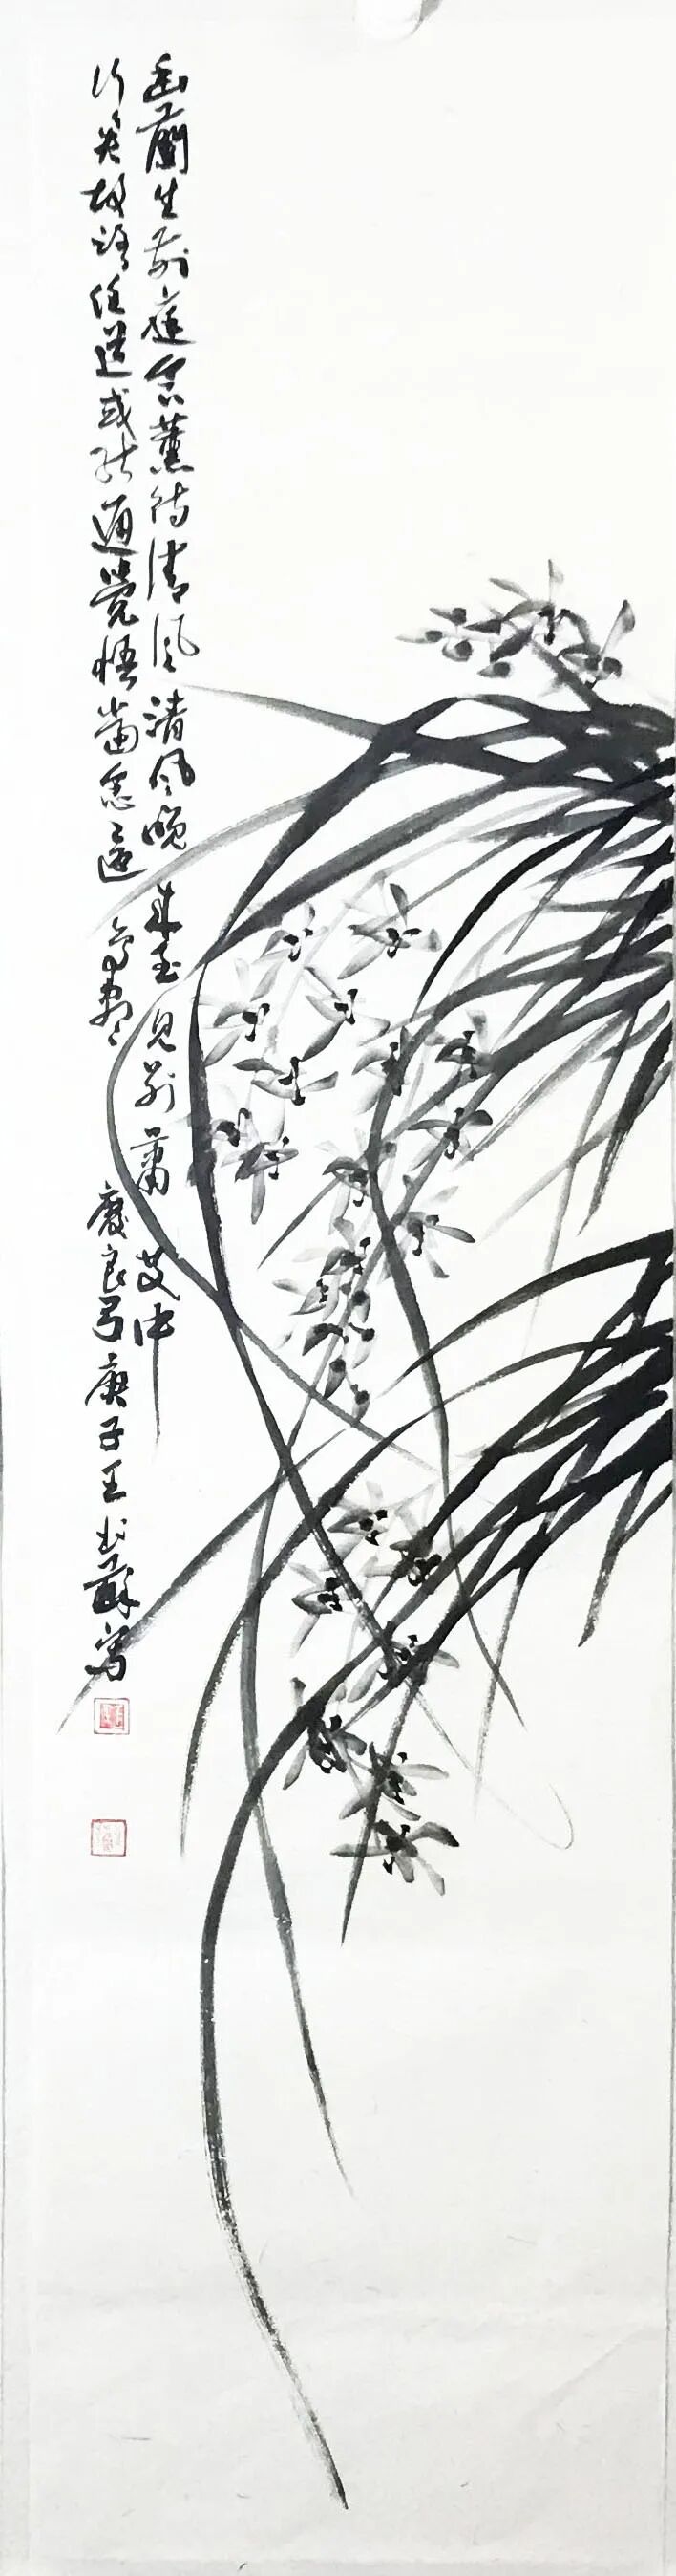 幽蘭生前庭含薰待清風清風脫然至見別蕭艾中
行々失故路任道或能通覺悟當念還鳥盡廢良弓庚子王蘇寫